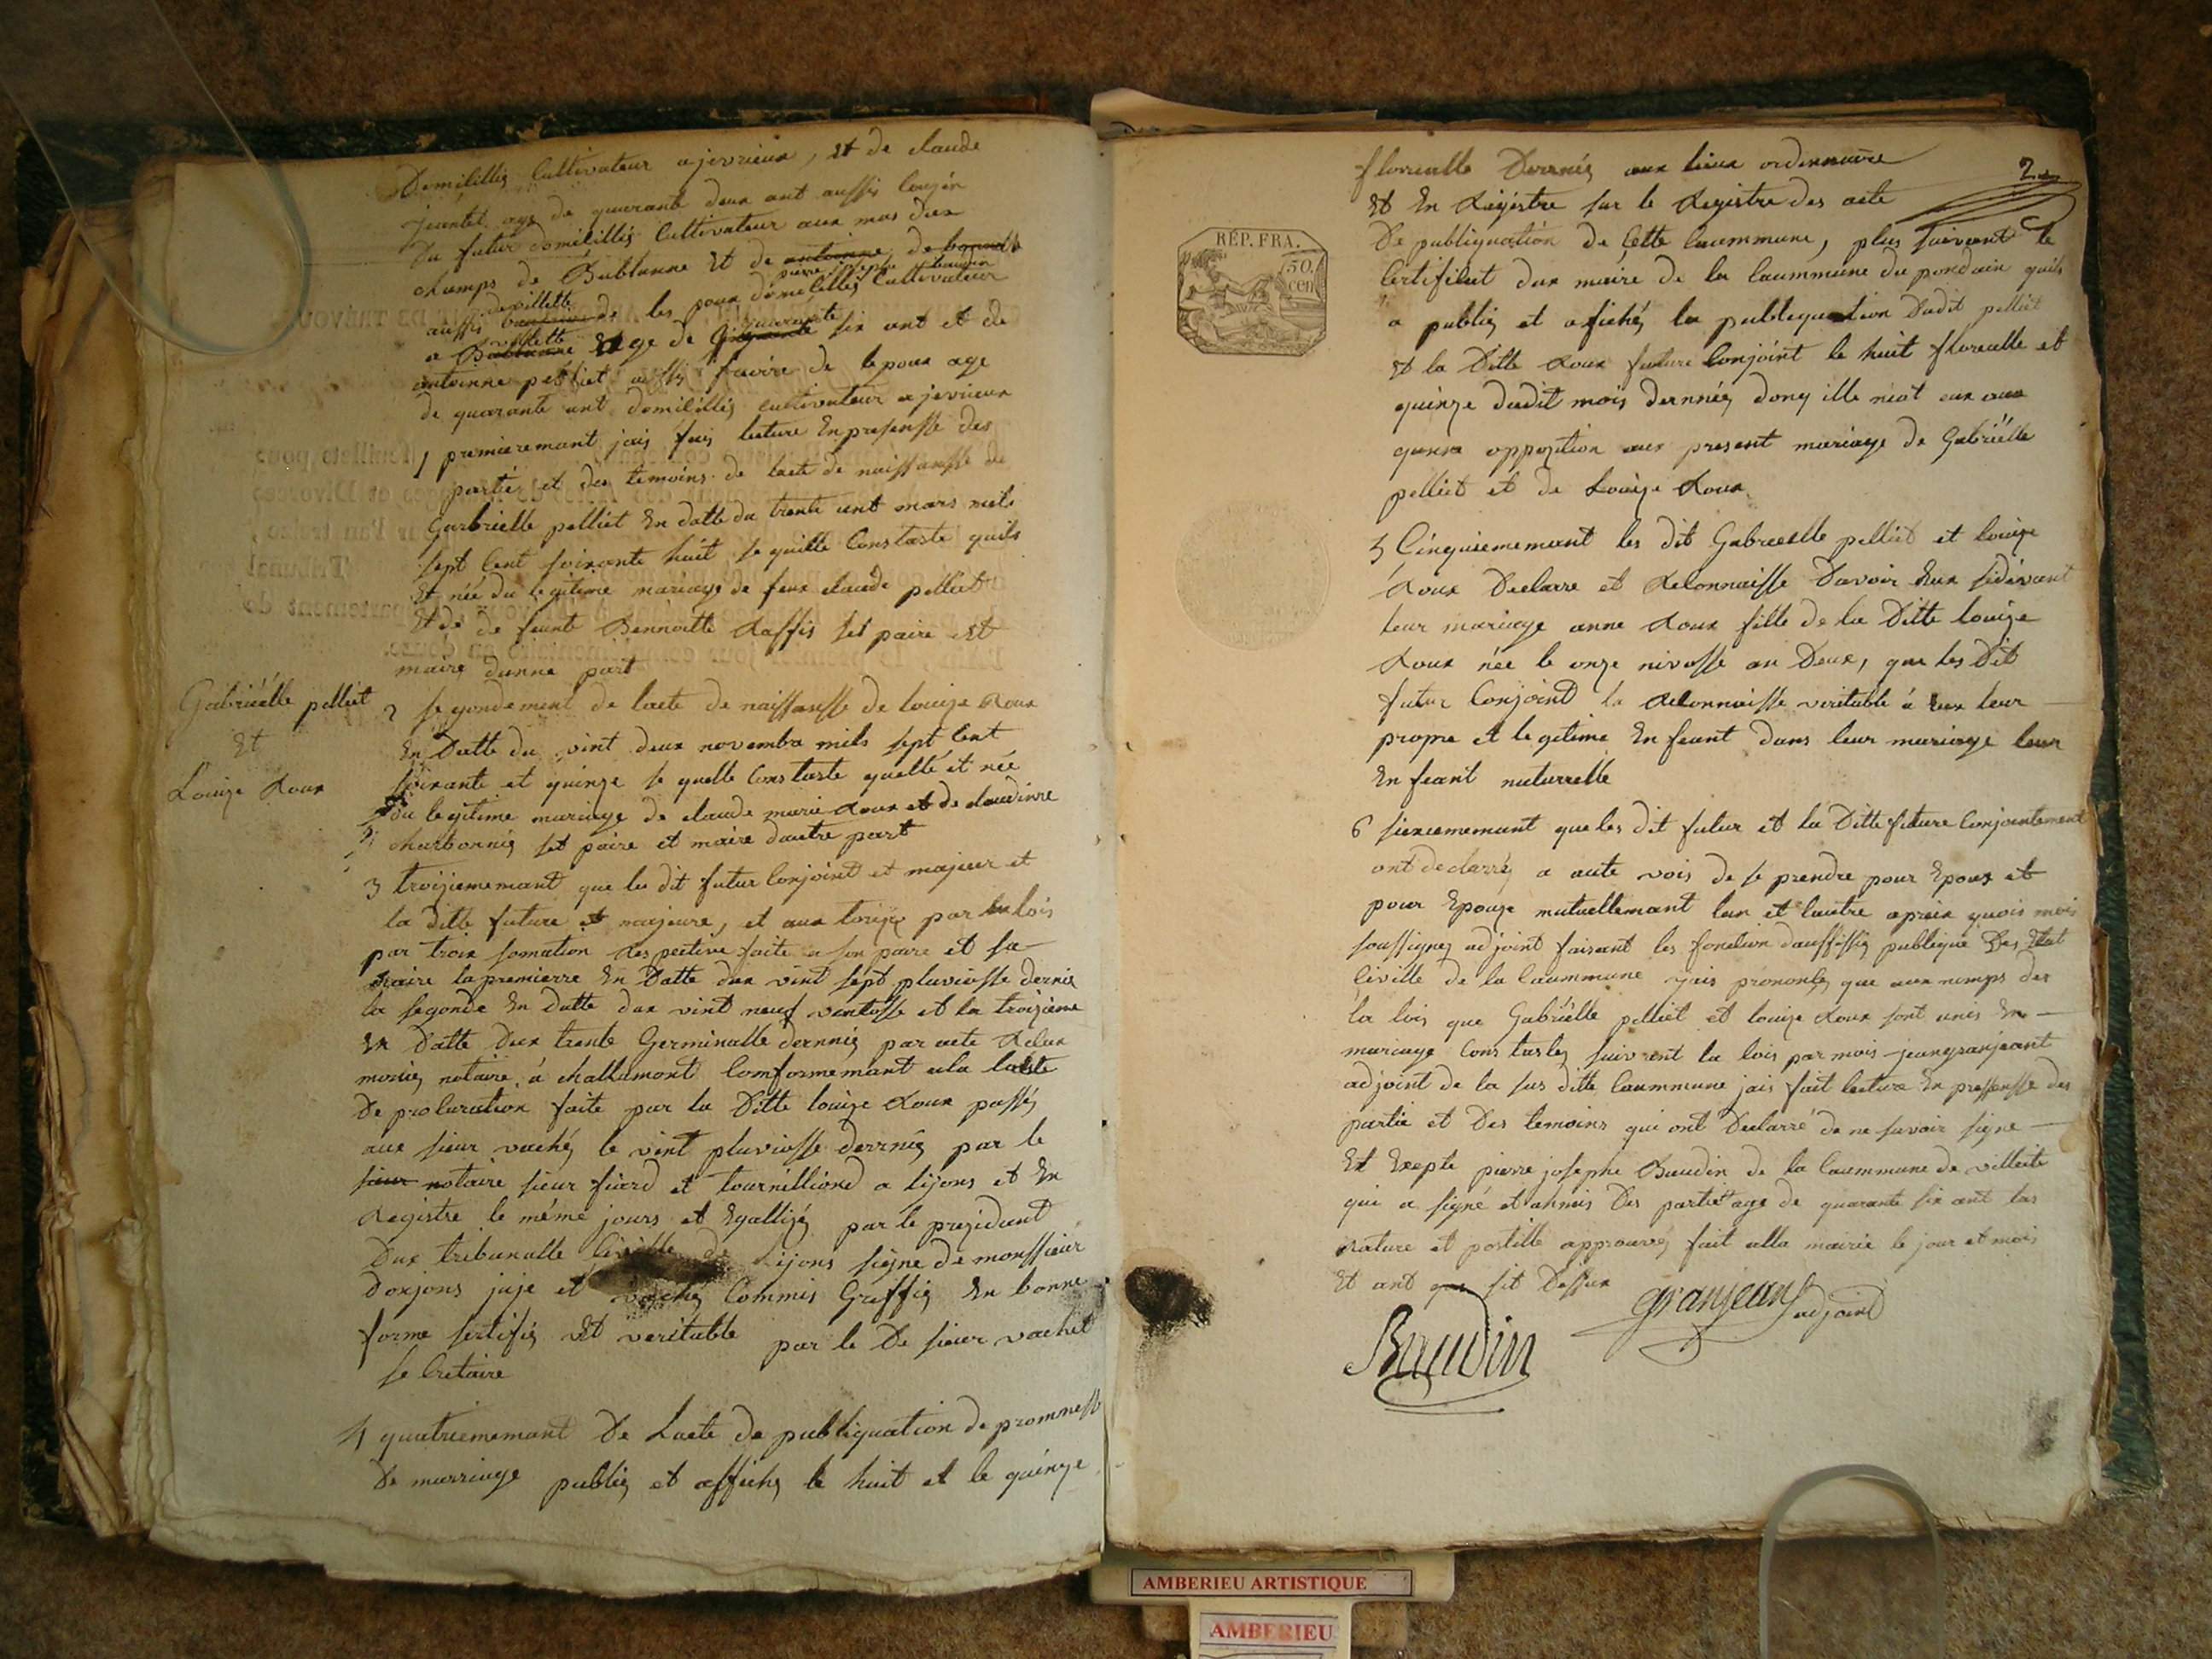 Domiçilliz Cultivateur a jevrieux, et de claude
jeantet age de quarante deux ant aussis Cougén
Du futur domiçilliz Cultivateur aux mas dux
champs de Bublanne Et de antoinne de
pierre joseph baudin
devillette
aussis de les poux domiçilliz Cultivateur
villette quarante
a Bublanne Et age de six ant et de
antoinne pelliet aussis fraire de lepoux age
de quarante ant domiçilliz cultivateur a jevrieux
1 premieremant jais fais lecture En presensse des
partiés et des temoins de lacte de naissansse de
Garbrielle pelliet En datte du trente unt mars mils
sept Cent soixante huit se quille Constaste quils
Et née du legitime mariage de feux claude pelliet
Et de de feunte Bennoitte Raffis set paire et
maire dunne part
Gabriéelle pelliet
Et
Louize Roux
2 segondement de lacte de naissansse de louize Roux
En Datte du vint deux novembre mils sept Cent
soixante et quinze se quelle Constaste quelle et née
Du legitime mariage de claude marie Roux et de claudinne
charbonniz set paire et maire dautre part
3 troiziememant que les dit futur Conjoint et majeur et
la ditte future et majeure, et aux torize par la lois
par troix somation Respective faite a son paire et sa
maire la premierre En Datte dux vint sept pluviosse derniz
la segonde En datte dux vint neuf vantosse et la troizieme
En Datte Dux trente Germinalle derniéz par acte Relux
moriz notaire à challamont Comformemant ala lacte
De procuration faite par la Ditte louize Roux passéz
aux sieur vachéz le vint pluviosse derniéz par le
sieur notaire sieur fiard et tournilliond a lijons et En
Registre le méme jours et Egallizéz par le prezidant
Dux tribunalle Civille de Lijons signe de monssieur
Donjons juje et vachéz Commis Greffiz En bonne
forme sertifiz Et veritable par le De sieur vachet
se Cretaire
4 quatriememant De Lacte de publiquation de promnesse
De marriage publiéz et affichéz le huit et le quinze
2
florealle Derniéz aux lieux ordinnaire
Et En Régistre sur le Registre des acte
De publiquation de Cette Caummune, plus suivant le
Certificat dux maire de la Caummune du pondain quils
a publiéz et afichéz la publiquation Dudit pelliet
RÉP. FRA.
50
cen
Et la Ditte Roux future Conjoint le huit florealle et
quinze dudit mois derniéz donq ille niat eux aux
qunne oppozition aux present mariage de Gabriélle
pelliet et de Louize Roux
5 Cinquiememant les dit Gabrielle pelliet et louize
Roux Declarre et Reconnaisse Davoir Eux sidevant
leur mariage anne Roux fille de la Ditte louize
Roux née le onze nivosse an Deux, que les Dit
futur Conjoint la Reconnaisse veritable à Eux leur
propre et legitime En feant dans leur mariage leur
En feant naturrelle
6 sixiememant que les dit futur et la Ditte future Conjointement
ont declarréz a aute vois de se prendre pour Epoux et
pour Epouze mutuellemant lun et lautre apraix quois mois
soussignez adjoint faisant les fonction dauffissiz publique Des Etat
Civille de la Caummune jais prononçéz que aux nomps des
la lois que Gabriélle pelliet et louize Roux sont unes En
mariage Constastez suivrent la lois par mois jeangranjeant
adjoint de la sus ditte Caummune jais fait lecture En pressensse des
partie et Des temoins qui ont Declarré de ne savoir signe
Et Exepte pierre josephe Baudin de la Caummune de villette
qui a signé et ahmis Des partiet age de quarante six ant las
Rature et postille approuvréz fait alla mairie le jour et mois
Et ant que sit Dessux
granjeant adjoint
Baudin
AMBERIEU ARTISTIQUE
AMBERIEU